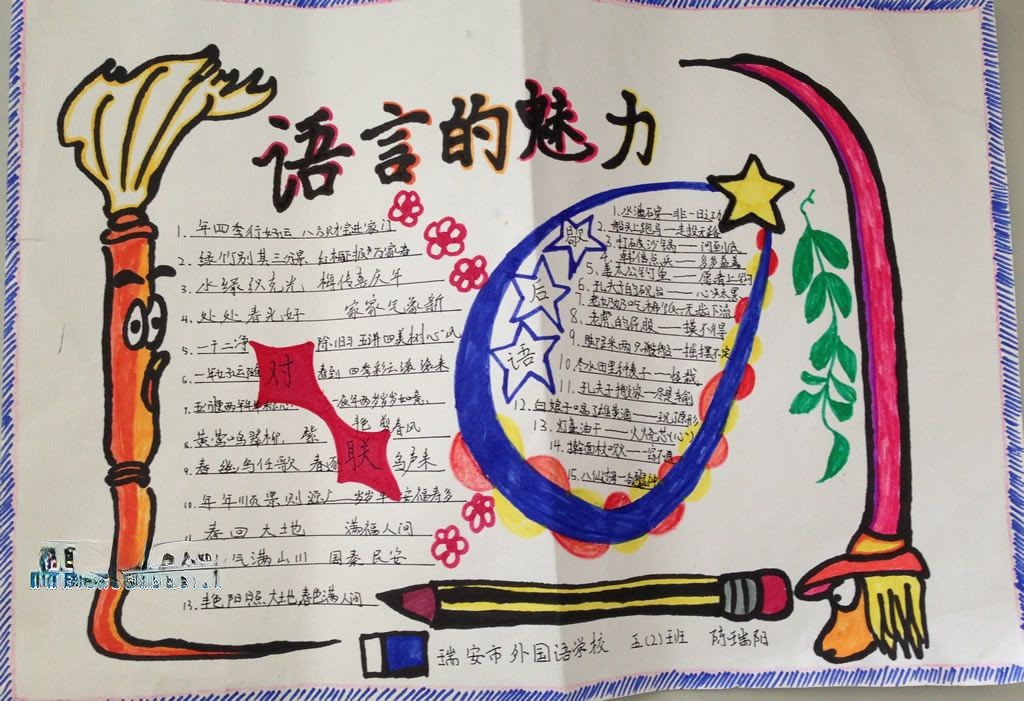 语言的魅力
对联
1. 年四季行好运 八方财宝进家门
2. 绿竹别其三分景 红梅正报万家春
3. 水绿纹充光,梅传喜庆年
4. 处处春光好 家家气象新
5. 一干二净除旧习 五讲四美树新风
6. 一年好运随 春到 四季彩云滚滚来
7. 岁岁如意
8. 黄莺鸣翠柳,紫 艳剪春风
9. 春继鸟任歌 春 鸟声来
10. 年年顺景则源广 岁岁平安福寿多
春回大地 满福人间
气满山川 国泰民安
13. 艳阳照大地,春色满人间
歇后语
1. 水滴石穿—非一日之功
2. 船头上跑马—走投无路
3. 打破沙锅—问到底
4. 韩信点兵—多多益善
5. 姜太公钓鱼—愿者上钩
6. 孔夫子的砚台—心太黑
7. 老奶奶吃 —无齿下流
8. 老虎的屁股—摸不得
9. 两只船—摇摆不定
10. 冬水田里种麦子—怪栽
11. 孔夫子搬家—尽是输
12. 白娘子喝雄黄酒—现了原形
13. 灯盏油干—火烧芯(心)
14. 擀面杖吹火—一窍不通
15. 八仙
瑞安市外国语学校 五(2)班 陈瑞阳